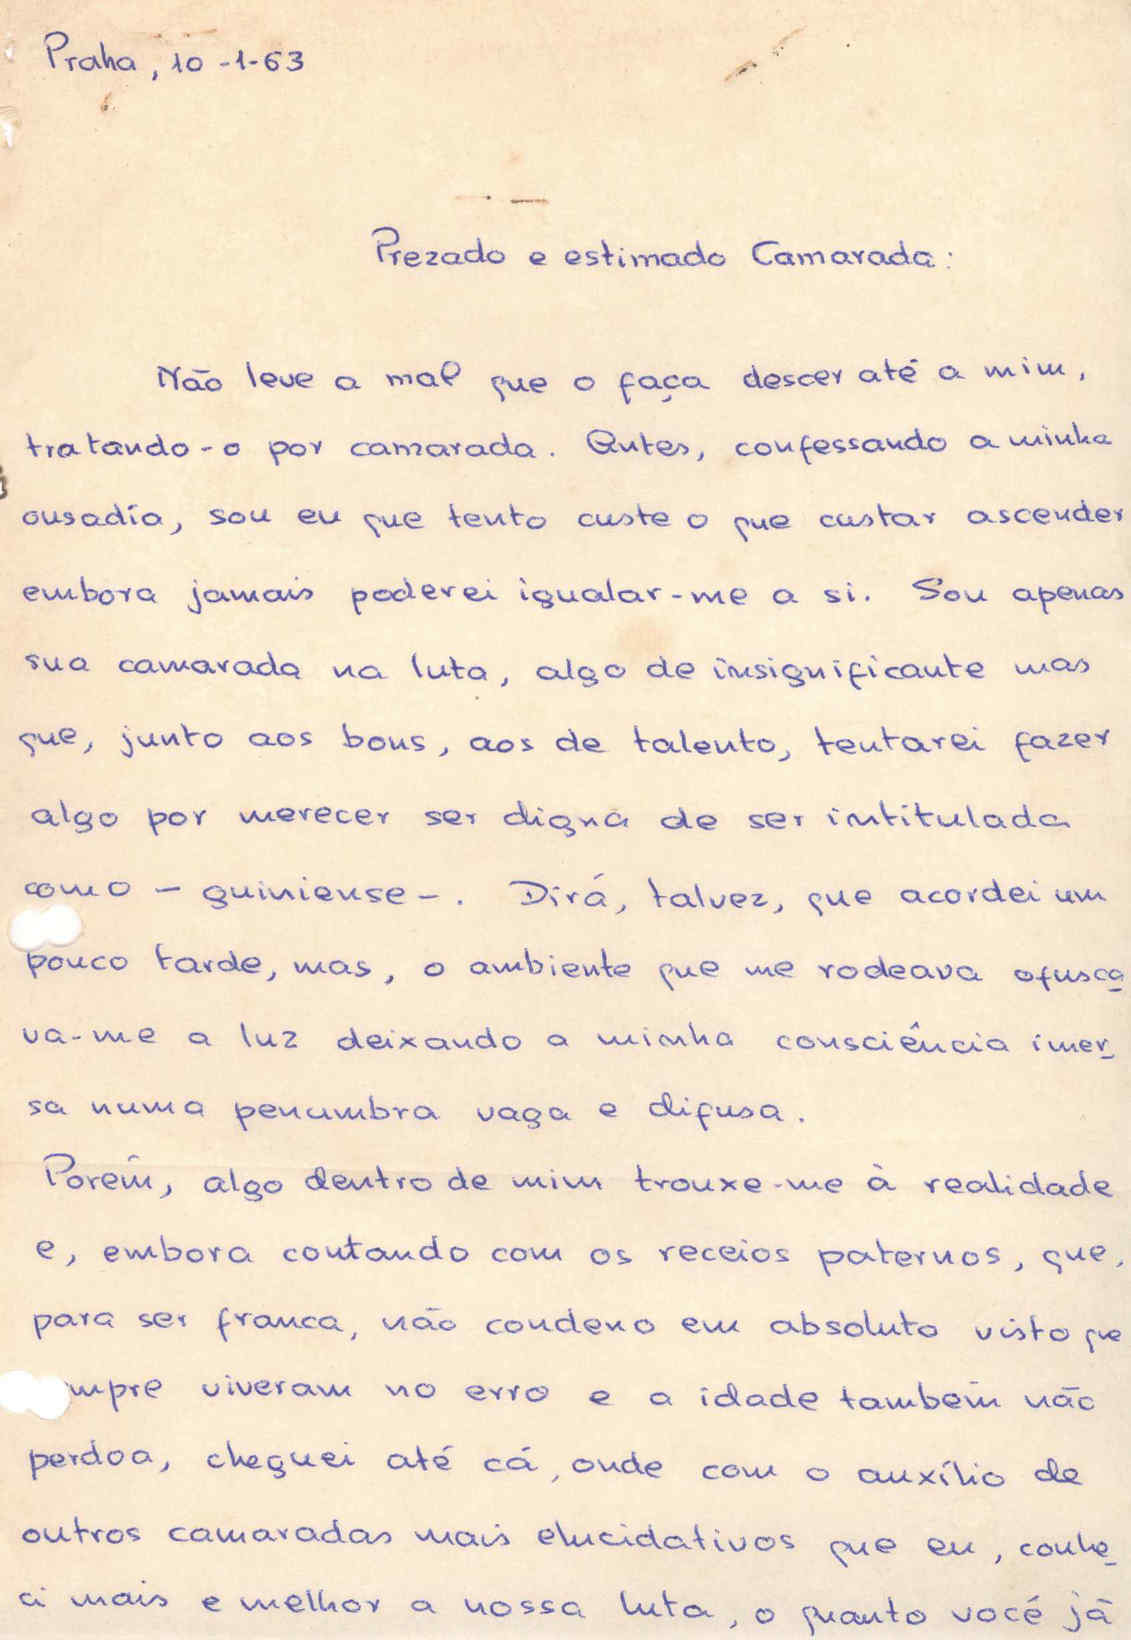 Praha, 10-1-63
Prezado e estimado Camarada:
Não leve a mal que o faça descer até a mim,
tratando-o por camarada. Antes, confessando a minha
ousadía, sou eu que tento custe o que custar ascender
embora jamais poderei igualar-me a si. Sou apenas
sua camarada na luta, algo de insignificante mas
que, junto aos bons, aos de talento, tentarei fazer
algo por merecer ser digna de ser intitulada
como - guiniense -. Dirá, talvez, que acordei um
pouco tarde, mas, o ambiente que me rodeava ofusca
va-me a luz deixando a minha consciência imer
sa numa penumbra vaga e difusa.
Porém, algo dentro de mim trouxe-me à realidade
e, embora contando com os receios paternos, que,
para ser franca, não condeno em absoluto visto que
mpre viveram no erro e a idade também não
perdoa, cheguei até cá, onde com o auxílio de
outros camaradas mais elucidativos que eu, conhe
ci mais e melhor a nossa luta, o quanto você já